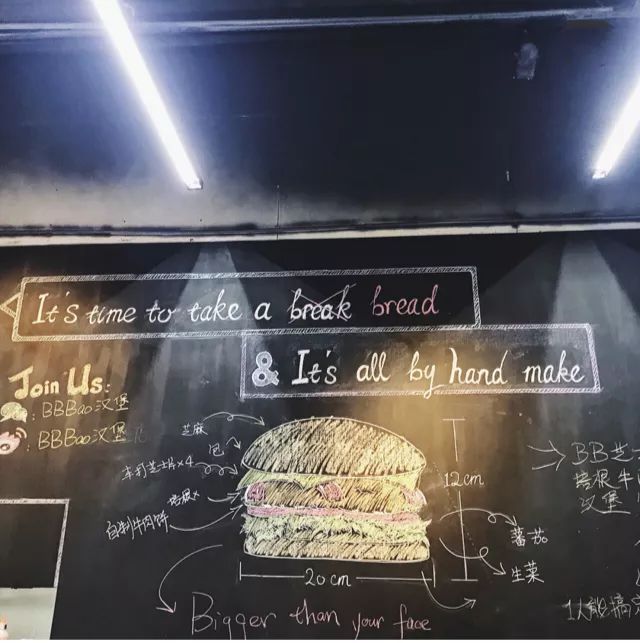 It's time to take a break bread
& It's all by hand make
Join Us:
: BBBao汉堡
: BBBao汉堡
芝麻
包
车打芝士片×4
培根×
自制牛肉饼
12cm
20cm
番茄
生菜
Bigger than your face
BB芝士
培根牛
汉堡
1人能搞定